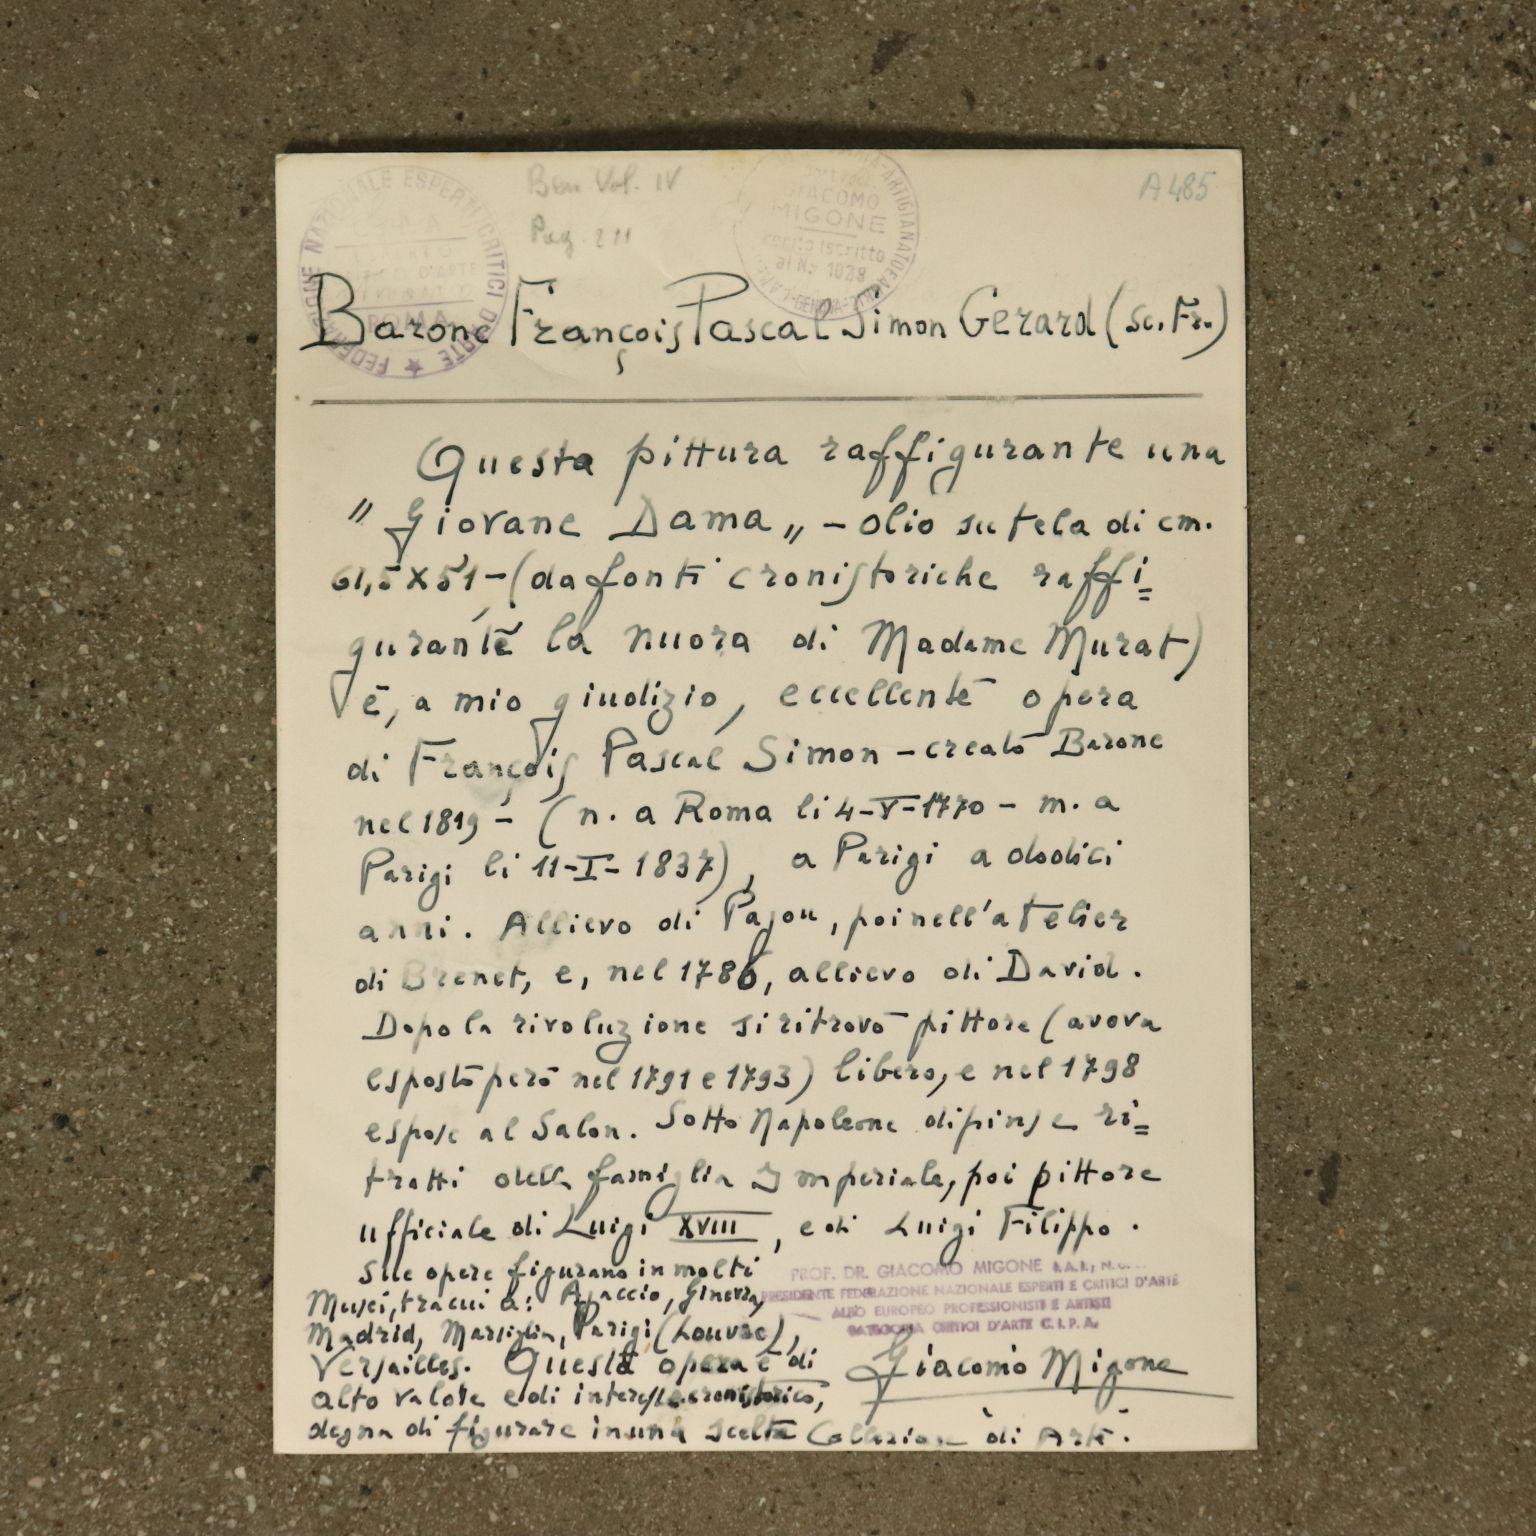 Ben Vol. IV
Pag. 211
A 485
FEDERAZIONE NAZIONALE ESPERTI CRITICI D'ARTE
ROMA
GIACOMO
MIGONE
Perito iscritto
al N. 1028
GENOVA
Barone François Pascal Simon Gerard (Sc. Fr.)
Questa pittura raffigurante una
"Giovane Dama" - olio su tela di cm.
61,5 x 51 - (da fonti cronistoriche raffi=
gurante la nuora di Madame Murat)
è, a mio giudizio, eccellente opera
di François Pascal Simon - creato Barone
nel 1819 - (n. a Roma li 4-V-1770 - m. a
Parigi li 11-I-1837), a Parigi a dodici
anni. Allievo di Pajou, poi nell'atelier
di Brenet, e, nel 1786, allievo di David.
Dopo la rivoluzione si ritrovò pittore (aveva
esposto però nel 1791 e 1793) libero, e nel 1798
espose al Salon. Sotto Napoleone dipinse ri=
tratti della famiglia Imperiale, poi pittore
ufficiale di Luigi XVIII, e di Luigi Filippo.
Sue opere figurano in molti
Musei, tra cui a: Ajaccio, Ginevra,
Madrid, Marsiglia, Parigi (Louvre),
Versailles. Questa opera è di
alto valore e di interesse cronistorico,
degna di figurare in una scelta Collezione di Arte.
PROF. DR. GIACOMO MIGONE
PRESIDENTE FEDERAZIONE NAZIONALE ESPERTI E CRITICI D'ARTE
ALBO EUROPEO PROFESSIONISTI E ARTISTI
CATEGORIA CRITICI D'ARTE C.I.P.A.
Giacomo Migone